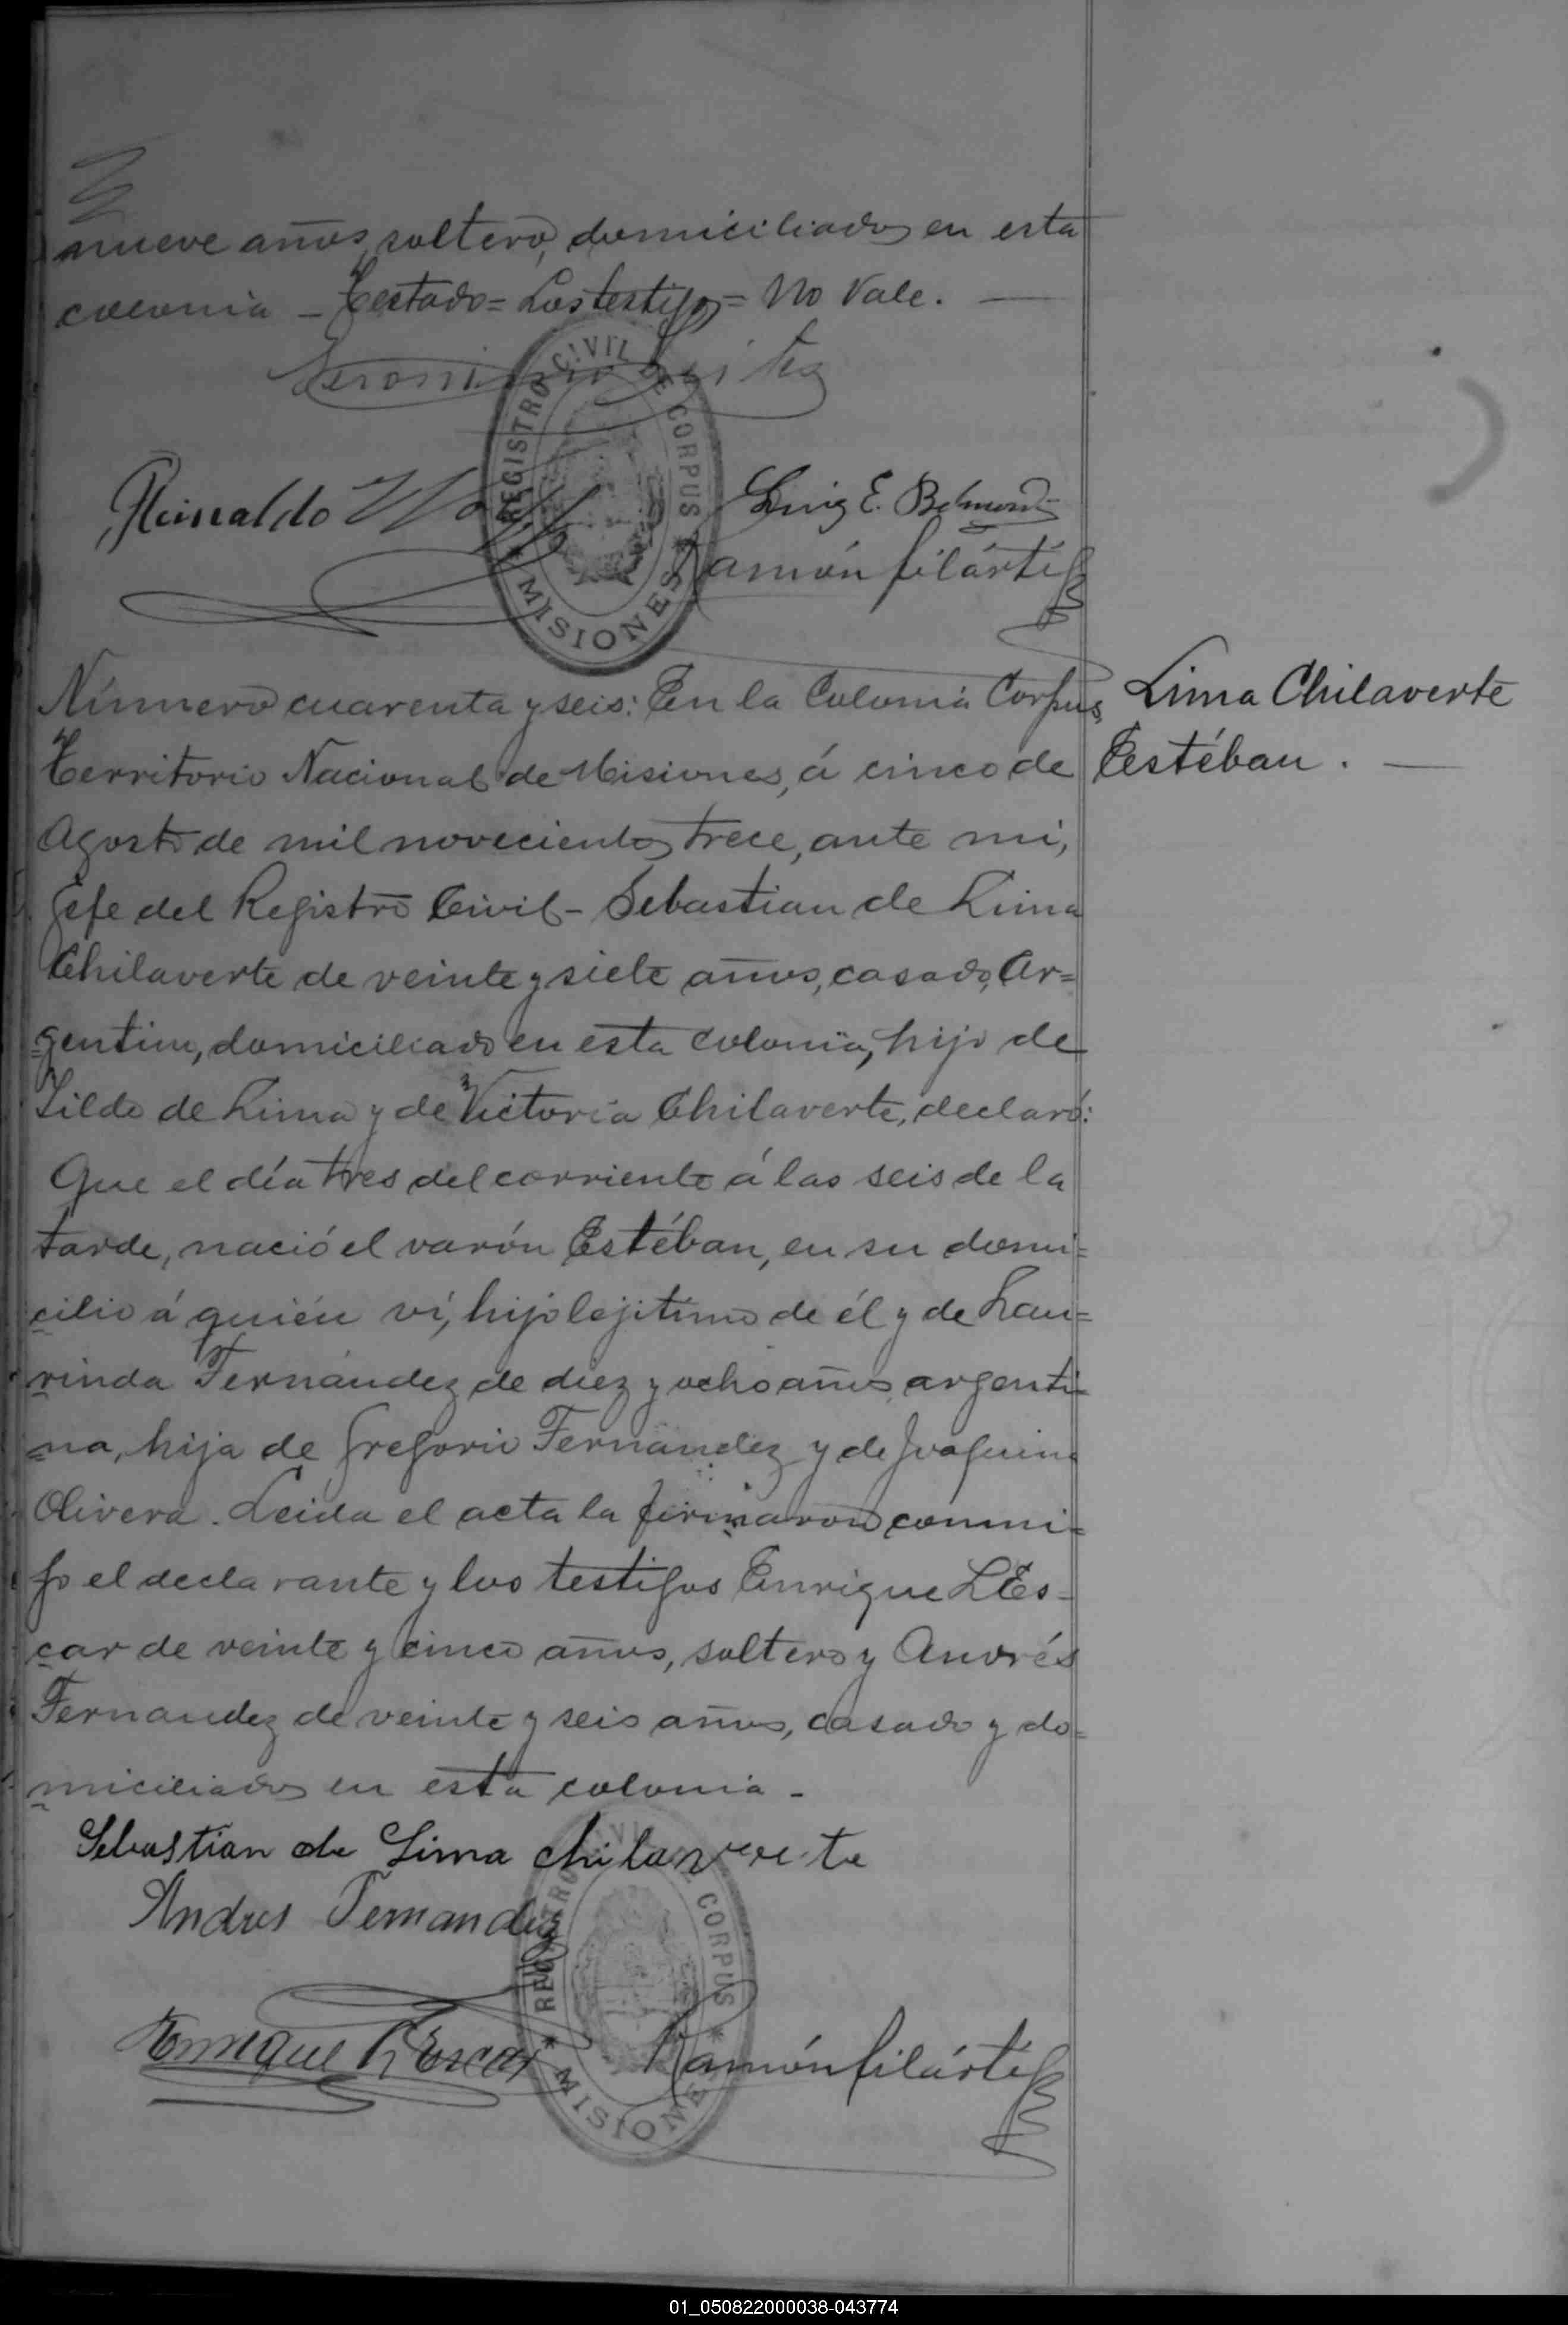 nueve años, soltero, domiciliados en esta
colonia _ Testado = Los testigos = No Vale. —
REGISTRO CIVIL DE CORPUS
* MISIONES *
Reinaldo
Luiz E.
Ramón Filártiga
Número cuarenta y seis: En la Colonia Corpus,
Lima Chilaverte
Estéban. —
Territorio Nacional de Misiones, á cinco de
Agosto de mil novecientos trece, ante mi,
Jefe del Registro Civil - Sebastian de Lima
Chilaverte de veinte y siete años, casado, Ar=
=gentino, domiciliado en esta colonia, hijo de
de Lima y de Victoria Chilaverte, declaró:
Que el día tres del corriente á las seis de la
tarde, nació el varón Estéban, en su domi=
cilio á quién ví, hijo lejitimo de él y de Lau=
rinda Fernández de diez y ocho años, argenti=
=na, hija de Gregorio Fernández y de Joaquina
Olivera. Leida el acta la firmaron conmi=
go el declarante y los testigos Enrique L'Es=
car de veinte y cinco años, soltero y Andrés
Fernandez de veinte y seis años, casado y do=
miciliados en esta colonia -
Sebastian de Lima chilaverte
Andres Fernandez
REGISTRO CIVIL DE CORPUS
* MISIONES *
Enrique L'Escar
Ramón Filártiga
01_050822000038-043774